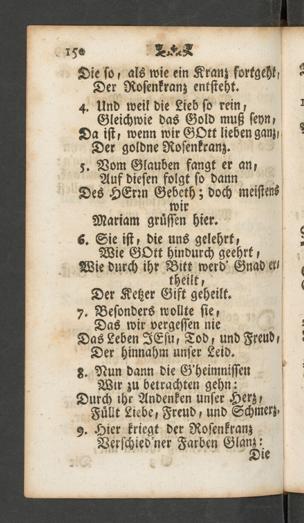 150
Die so, als wie ein Kranz fortgeht,
Der Rosenkranz entsteht.
4. Und weil die Lieb so rein,
Gleichwie das Gold muß seyn,
Da ist, wenn wir GOtt lieben ganz,
Der goldne Rosenkranz.
5. Vom Glauben fangt er an,
Auf diesen folgt so dann
Des HErrn Gebeth; doch meistens
wir
Mariam grüssen hier.
6. Sie ist, die uns gelehrt,
Wie GOtt hindurch geehrt,
Wie durch ihr Bitt werd' Gnad er-
theilt,
Der Ketzer Gift geheilt.
7. Besonders wollte sie,
Das wir vergessen nie
Das Leben JEsu, Tod, und Freud,
Der hinnahm unser Leid.
8. Nun dann die G'heimnissen
Wir zu betrachten gehn:
Durch ihr Andenken unser Herz,
Füllt Liebe, Freud, und Schmerz.
9. Hier kriegt der Rosenkranz
Verschied'ner Farben Glanz:
Die